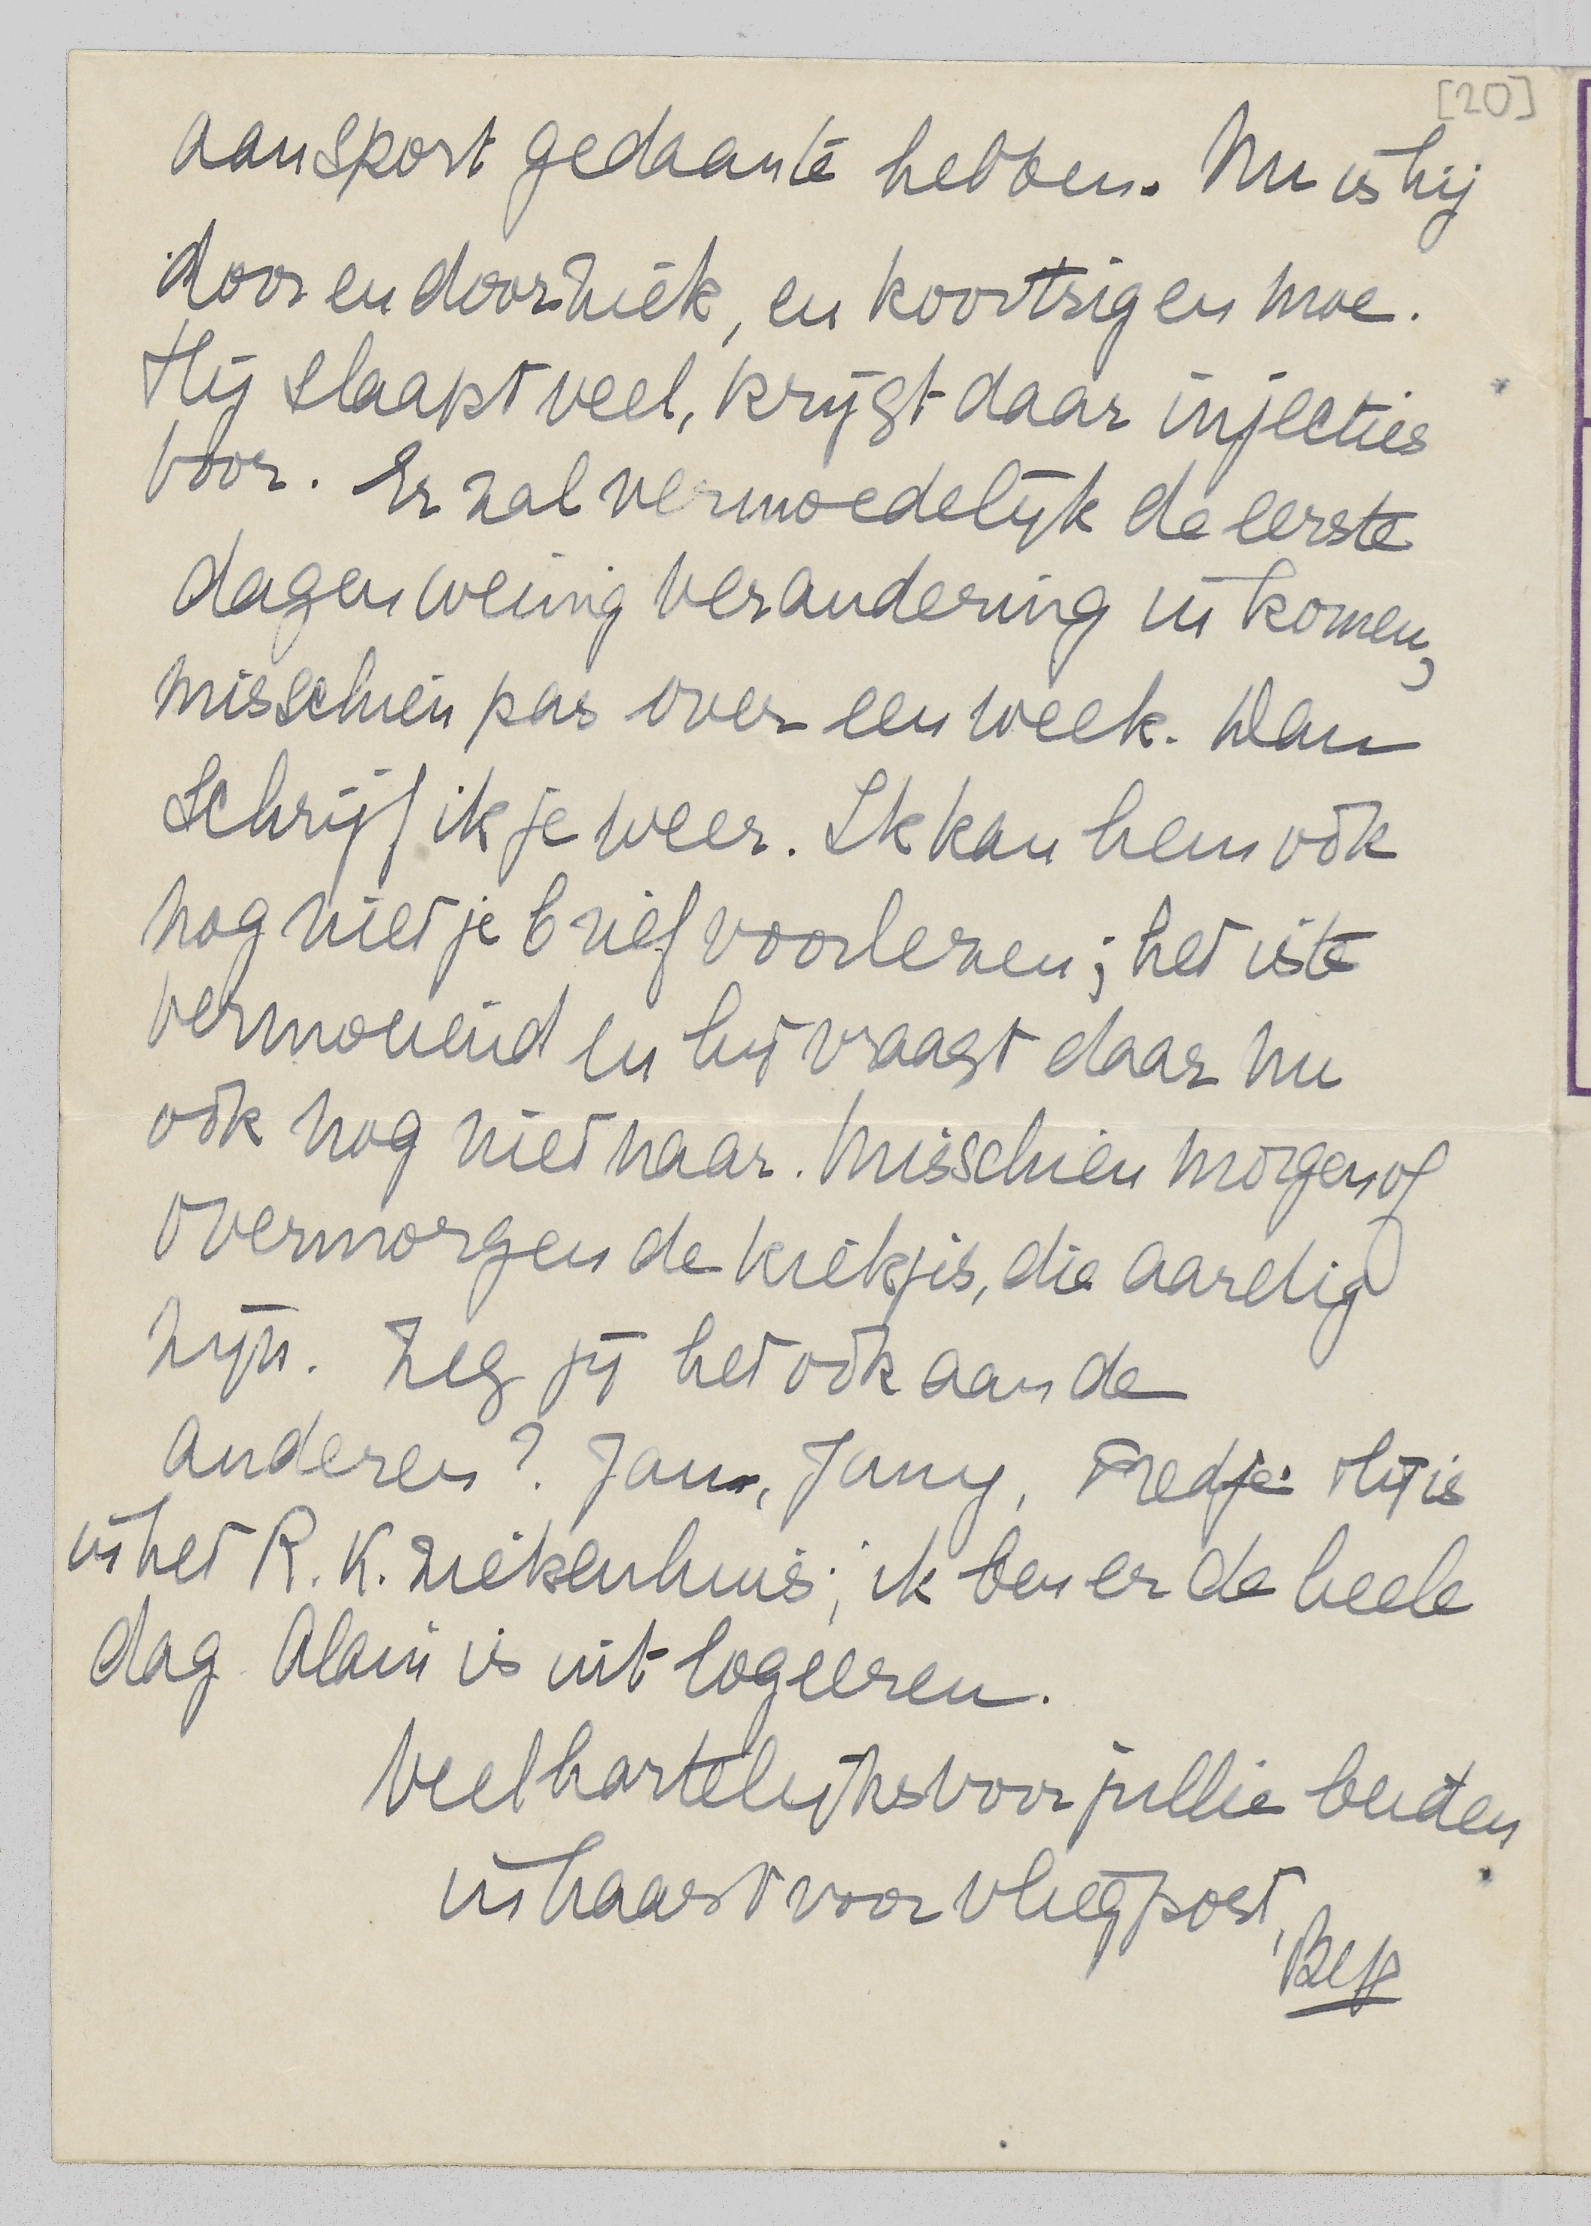 [20]
aan sport gedaan te hebben. Nu is hij
door en door ziek, en koortsig en moe.
Hij slaapt veel, krijgt daar injecties
voor. Er zal vermoedelijk de eerste
dagen weinig verandering in komen,
misschien pas over een week. Dan
schrijf ik je weer. Ik kan hem ook
nog niet je brief voorlezen; het is te
vermoeiend en hij vraagt daar nu
ook nog niet naar. Misschien morgen of
overmorgen de kiekjes, die aardig
zijn. Zeg jij het ook aan de
anderen? Jan, Jany, Fredje. Hij is
in het R.K. ziekenhuis; ik ben er de heele
dag. Alain is uit logeeren.
Veel hartelijks voor jullie beiden
in haast voor vliegpost,
Bep